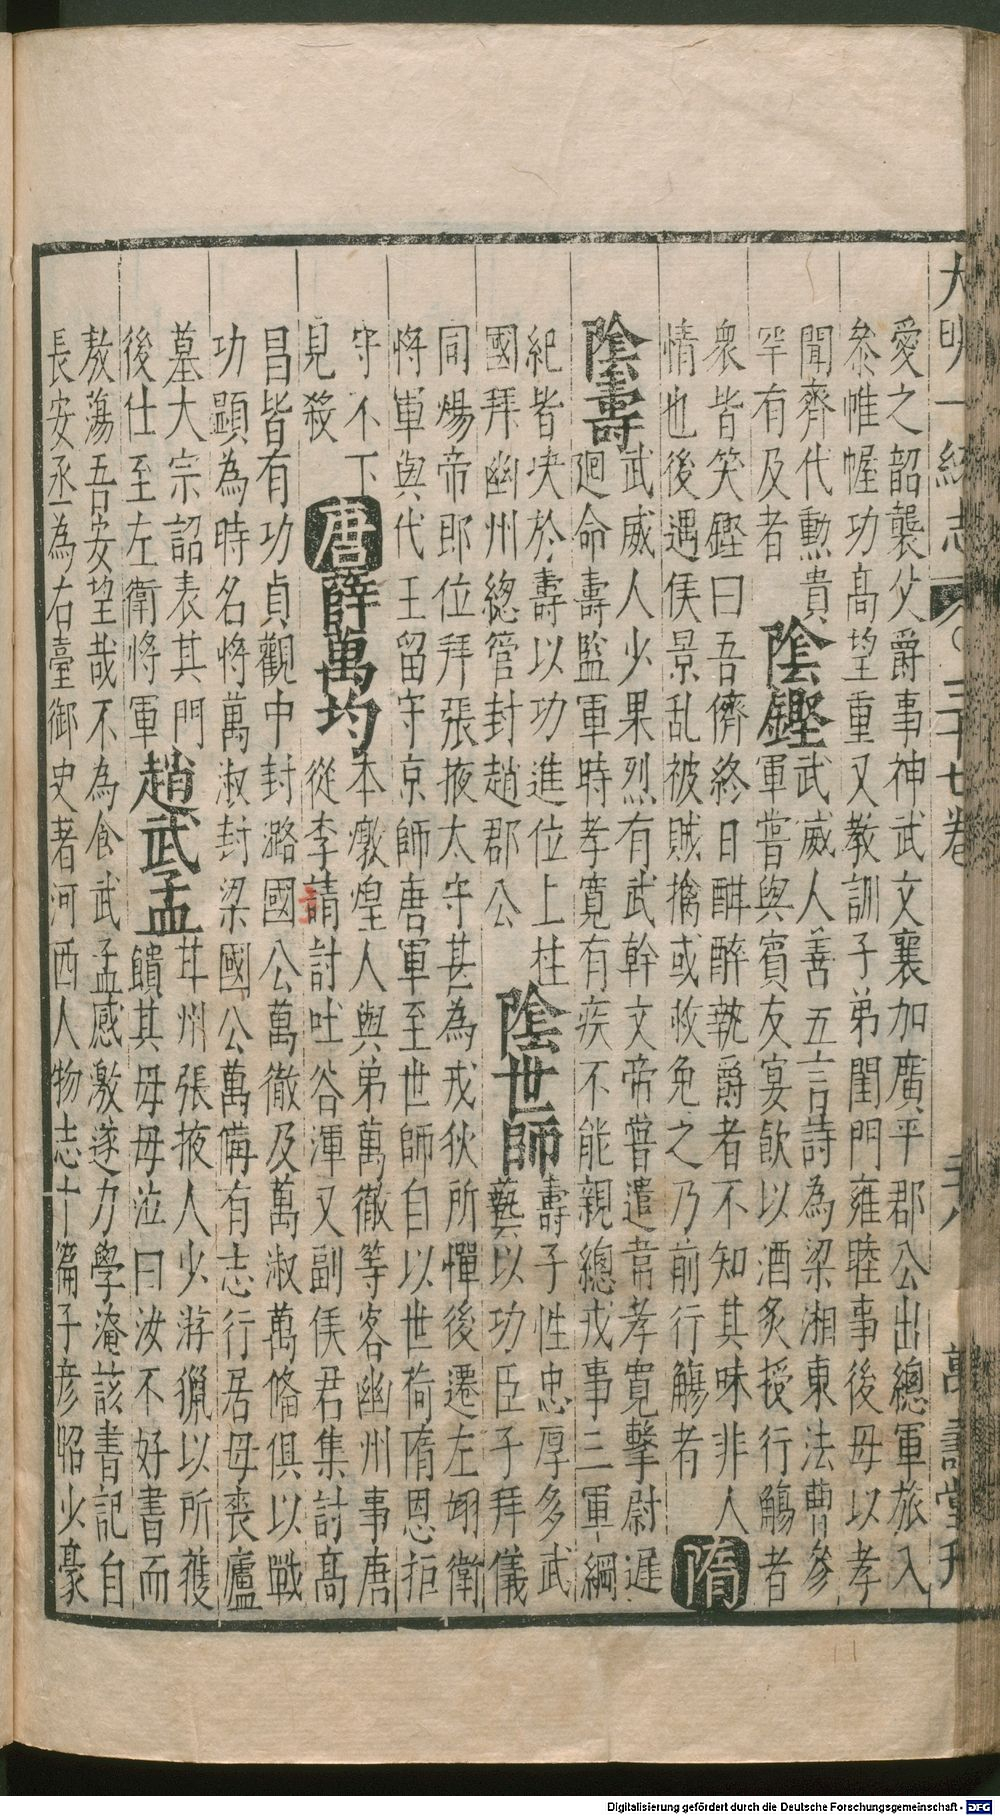 大明一統志 三十七卷 三十八 萬壽堂刊
愛之韶襲父爵事神武文襄加廣平郡公出總軍旅入
叅惟幄功髙望重又教訓子弟閨門雍睦事後母以孝
聞齊代勳貴
罕有及者
陰鏗
武威人善五言詩為梁湘東法曹參
軍嘗與賓友宴飲以酒炙授行觴者
衆皆笑鏗曰吾儕終日酣醉執爵者不知其味非人
情也後遇侯景乱被賊擒或救免之乃前行觴者
隋
陰壽
武威人少果烈有武幹文帝嘗遣韋孝寛擊尉遲
迥命壽監軍時孝寛有疾不能親總戎事三軍綱
紀皆决於壽以功進位上柱
國拜幽州總管封趙郡公
陰世師
壽子性忠厚多武
藝以功臣子拜儀
同煬帝即位拜張掖太守甚為戎狄所憚後遷左翊衛
将軍與代王留守京師唐軍至世師自以世荷隋恩拒
守不下
見殺
唐
薛萬均
本燉煌人與弟萬徹等客幽州事唐
從李靖討吐谷渾又副侯君集討髙
昌皆有功貞觀中封潞國公萬徹及萬淑萬俻俱以戰
功顯為時名將萬淑封梁國公萬備有志行居母喪廬
墓大宗詔表其門
後仕至左衛将軍
趙武孟
甘州張掖人少游獵以所獲
饋其母母泣曰汝不好書而
敖蕩吾安望哉不為食武孟感激遂力學淹該書記自
長安丞為右臺御史著河西人物志十篇子彦昭少豪
Digitalisierung gefördert durch die Deutsche Forschungsgemeinschaft - DFG